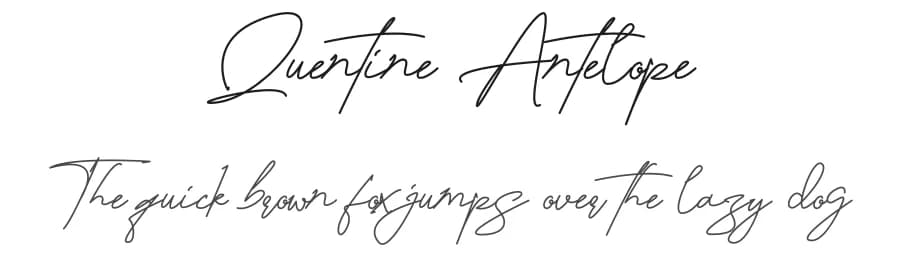 Quentine Antelope
The quick brown fox jumps over the lazy dog